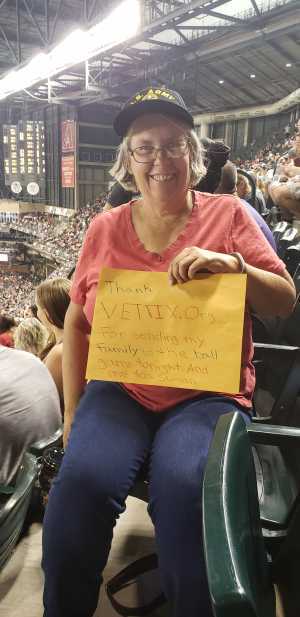 U.S. ARMY
Thank
VETTIX.Org
For sending my
Family to the ball
game tonight. And